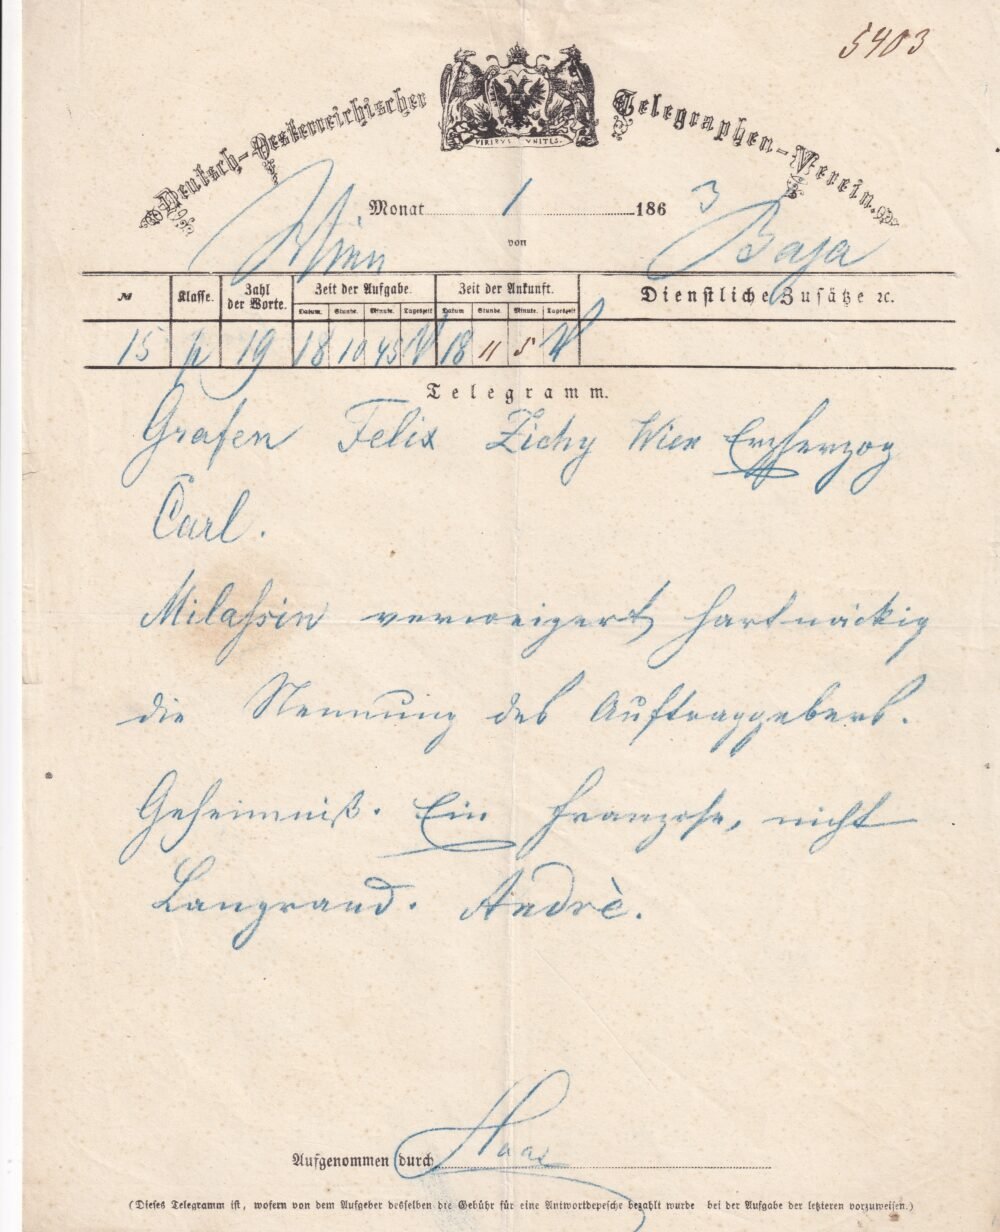 5403
Deutsch-Oesterreichischer Telegraphen-Verein.
VIRIBUS UNITIS.
Monat 1 1863
Wien von Baja
№ Klasse. Zahl der Worte. Zeit der Aufgabe. Zeit der Ankunft. Dienstliche Zusätze ꝛc.
Datum. Stunde. Minute. Tageszeit Datum Stunde. Minute. Tageszeit
15 p 19 18 10 45 V 18 11 5 V
Telegramm.
Grafen Felix Zichy Wien Erzherzog
Carl.
Milassin verweigert hartnäckig
die Nennung des Auftraggebers.
Geheimniß. Ein Franzose, nicht
Langrand. Andrè.
Aufgenommen durch Haas
(Dieses Telegramm ist, wofern von dem Aufgeber desselben die Gebühr für eine Antwortdepesche bezahlt wurde bei der Aufgabe der letzteren vorzuweisen.)